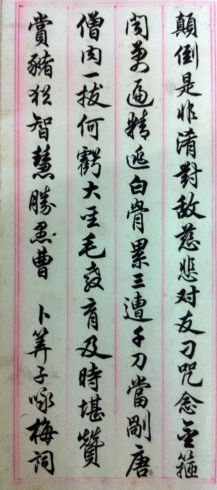 顛倒是非淆對敵慈悲对友刁咒念金箍
聞萬遍精逃白骨累三遭千刀當剮唐
僧肉一拔何虧大圣毛教育及時堪贊
賞豬犹智慧勝愚曹 卜算子咏梅詞